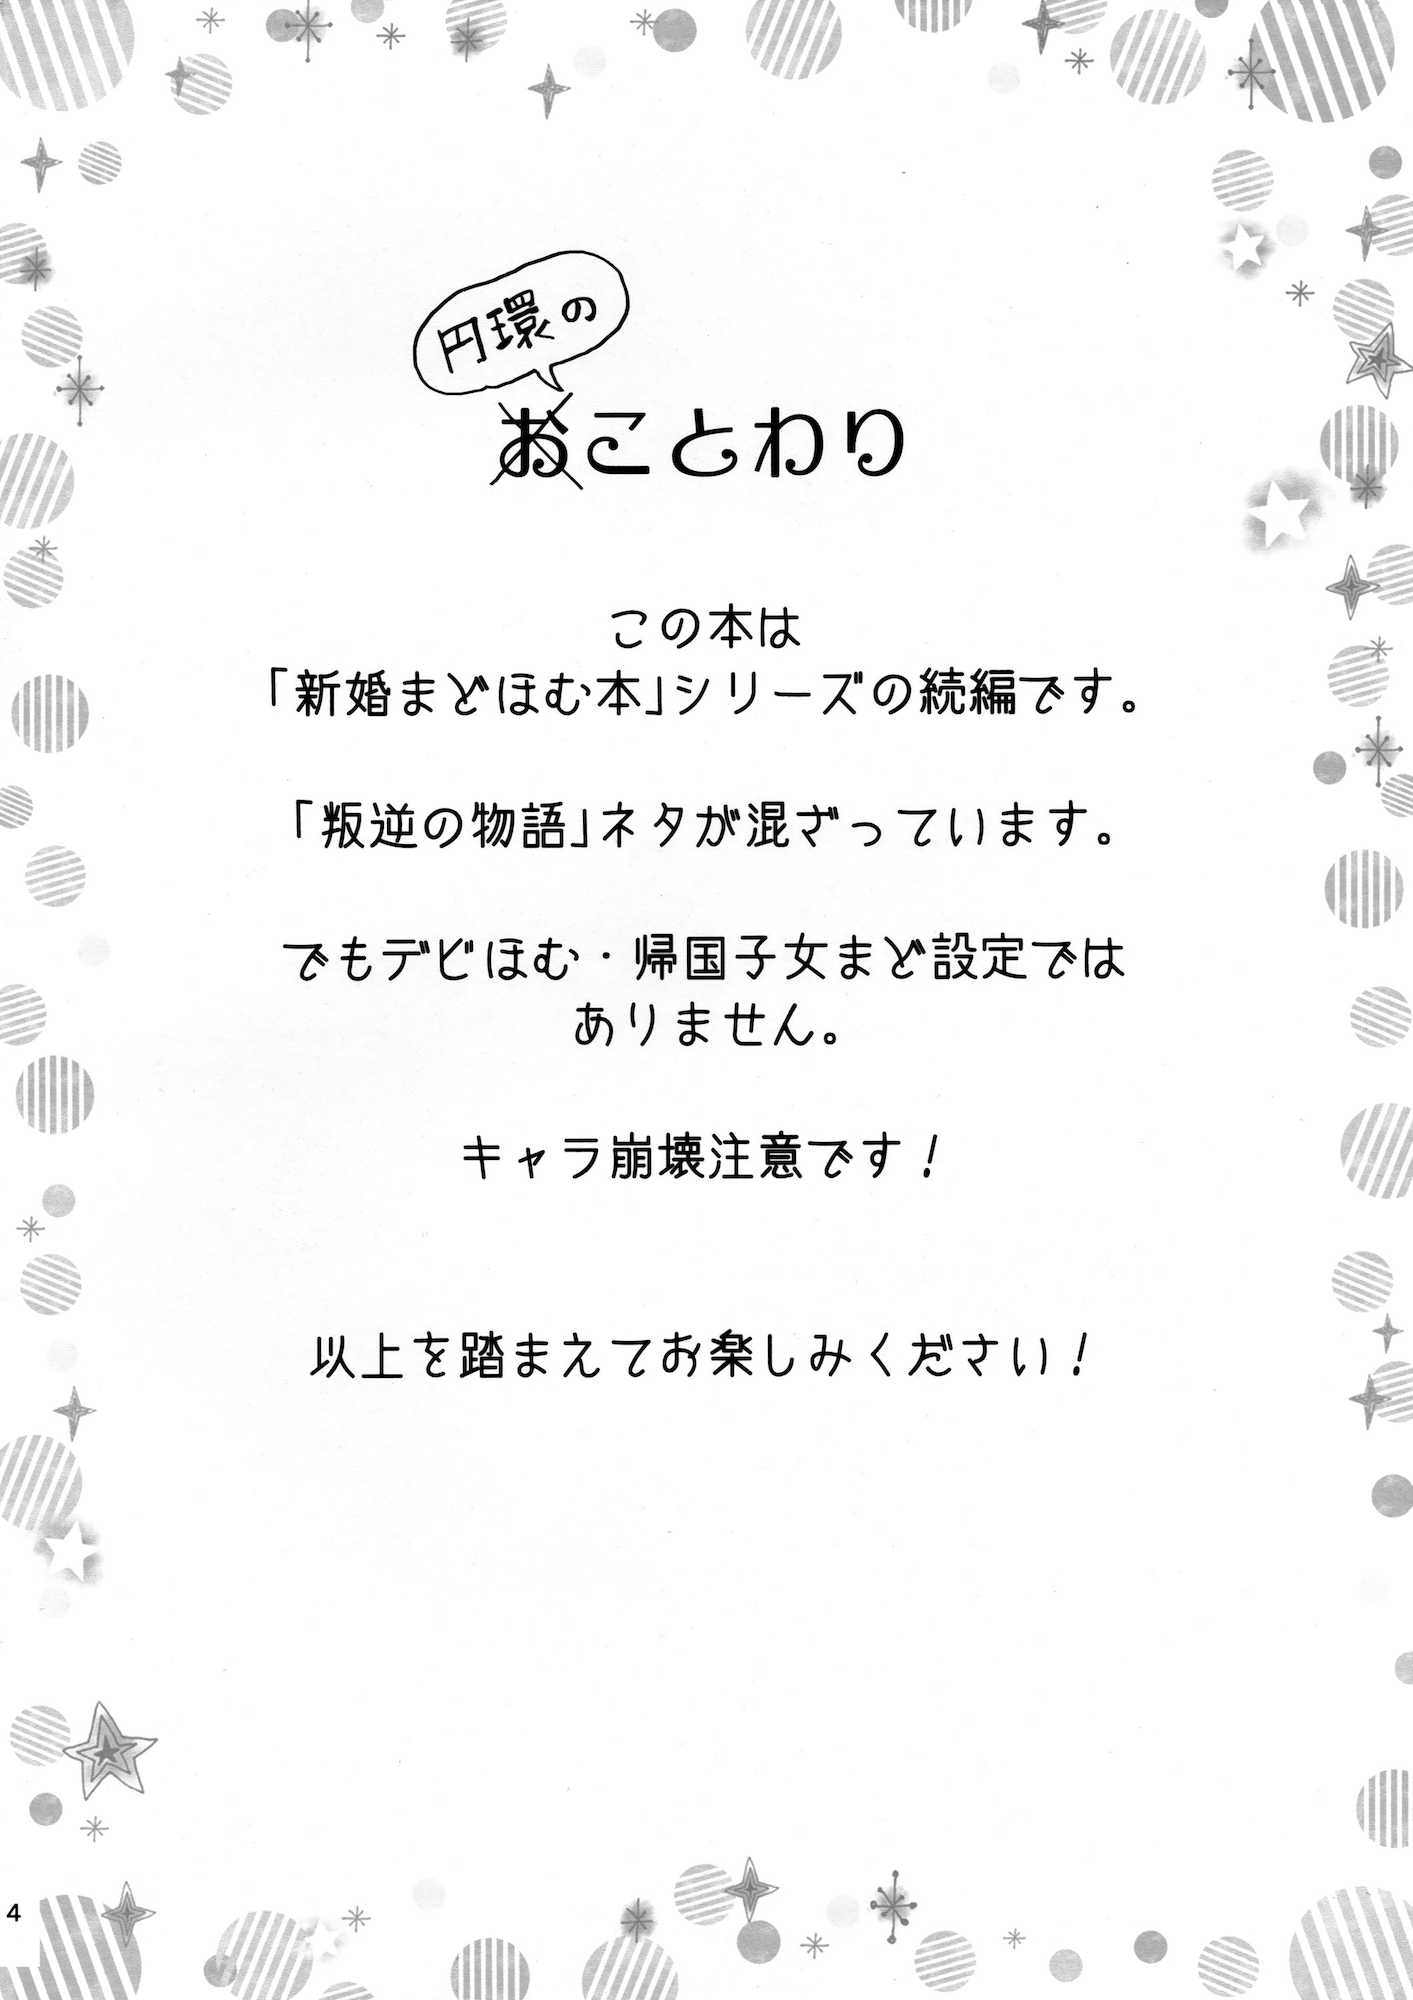 円環の
おことわり
この本は
「新婚まどほむ本」シリーズの続編です。
「叛逆の物語」ネタが混ざっています。
でもデビほむ・帰国子女まど設定では
ありません。
キャラ崩壊注意です！
以上を踏まえてお楽しみください！
4